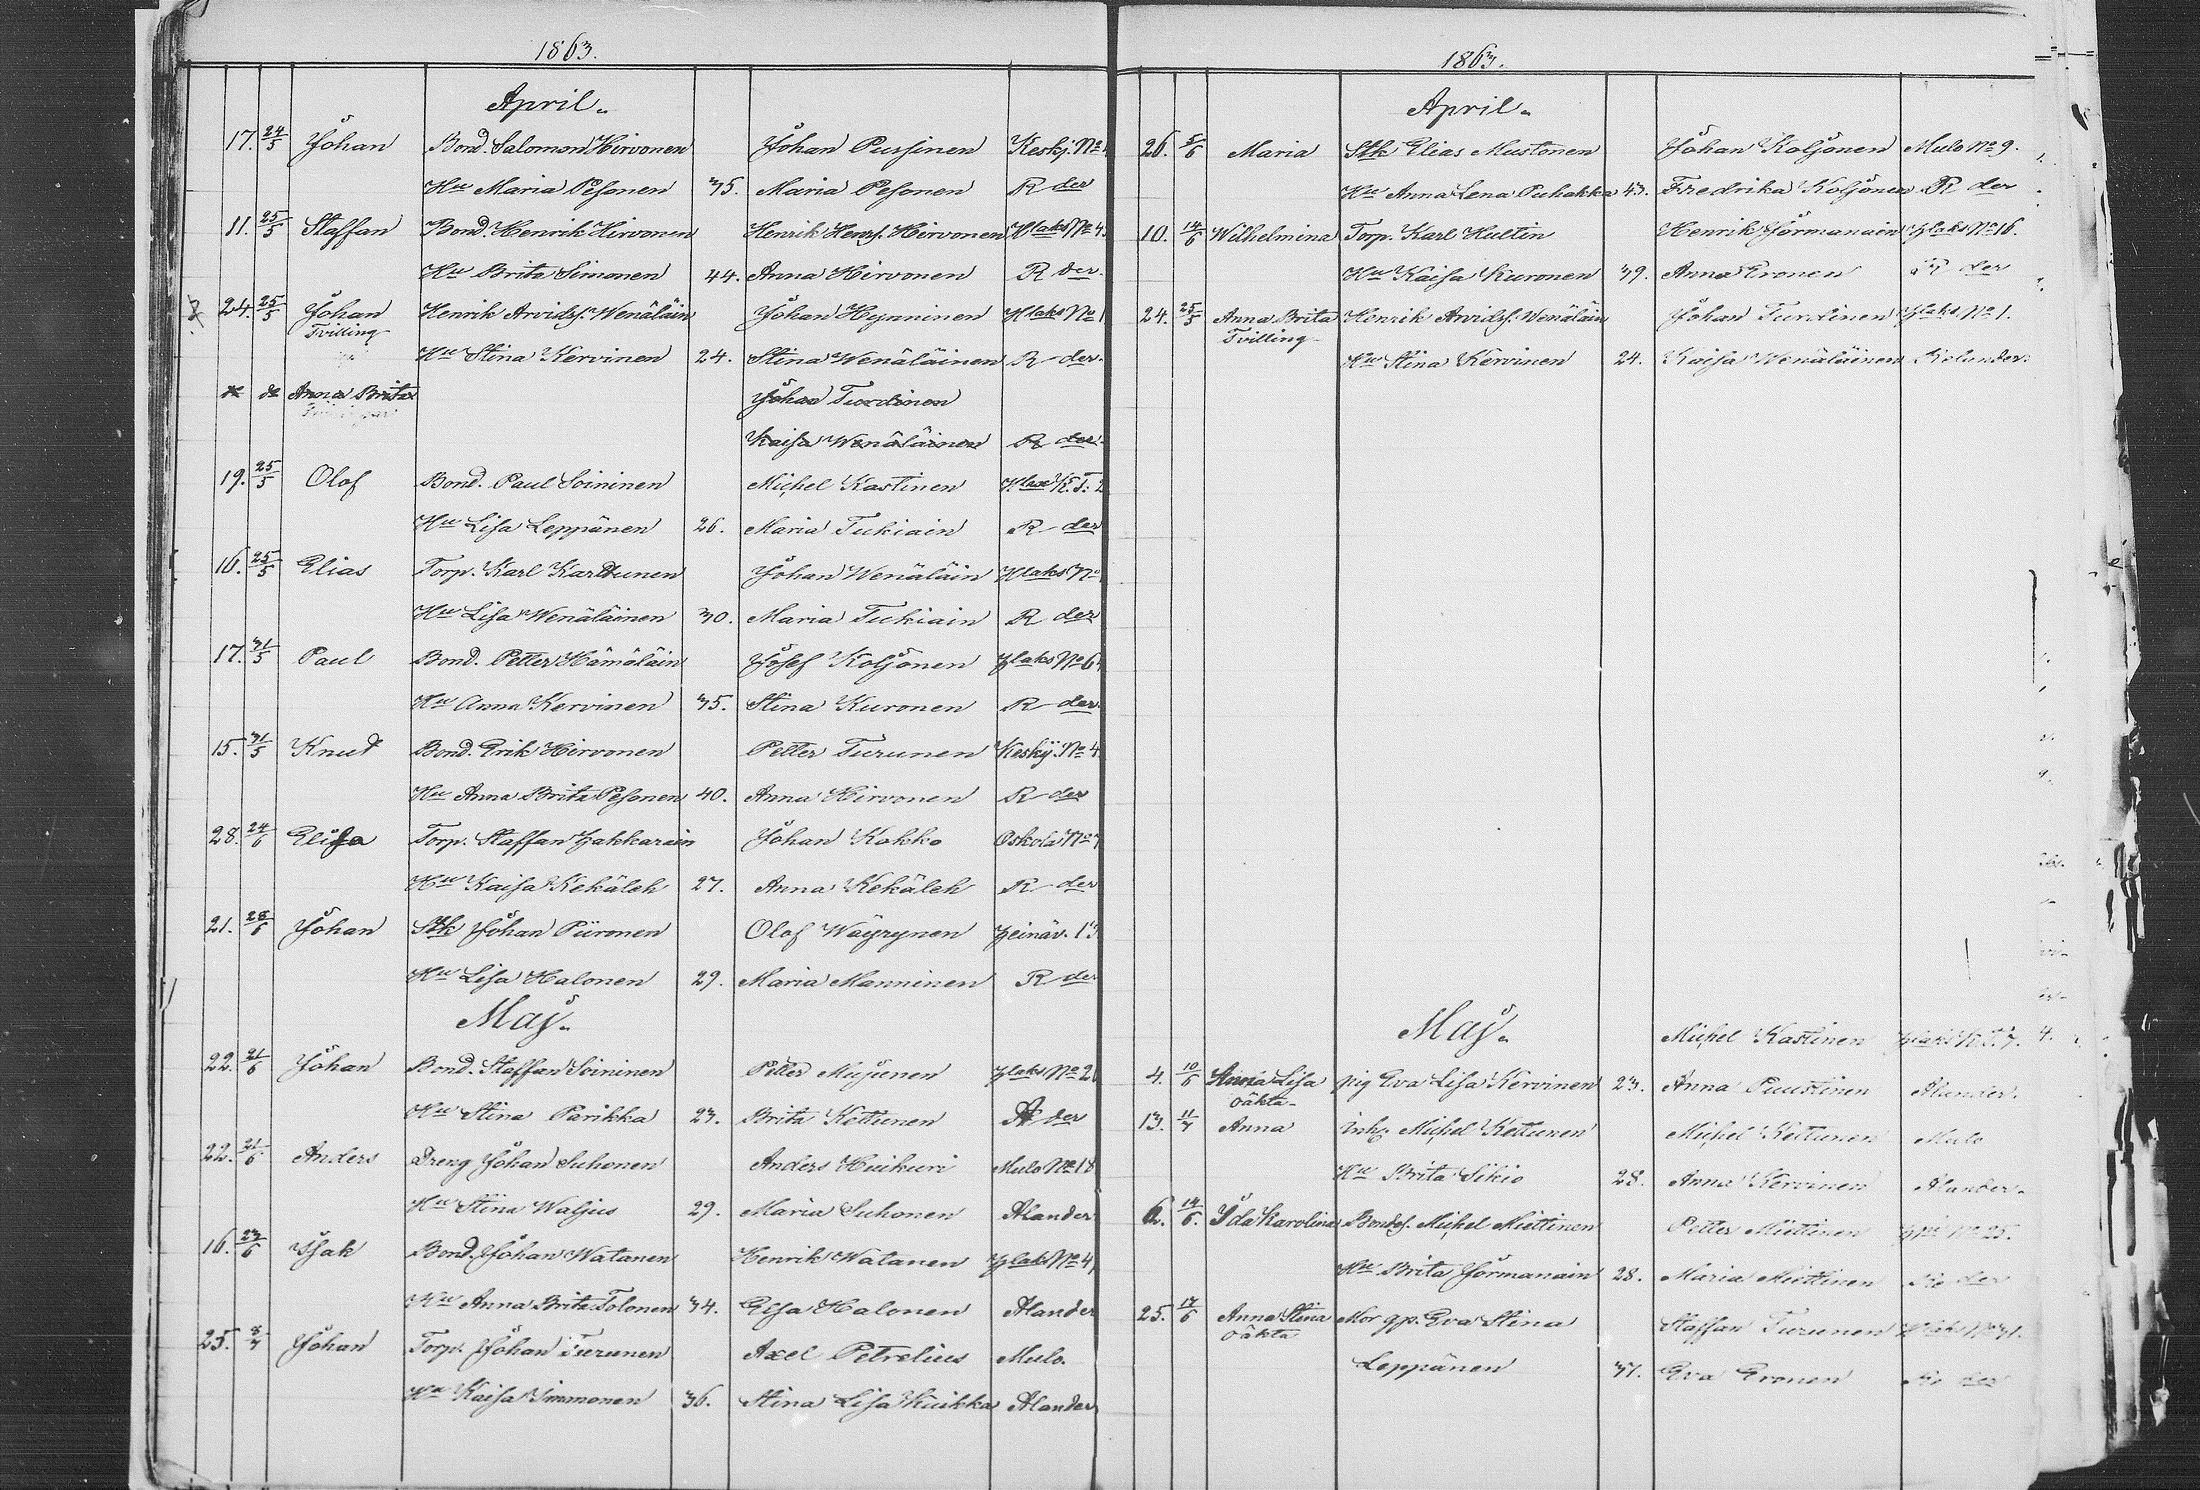 1863.
April.
17. 24/5 Johan Bond. Salomon Hirvonen Johan Pursinen Keskj. No
Hu Maria Pesonen 35. Maria Pesonen R der
11. 25/5 Staffan Bond. Henrik Hirvonen Henrik Henrs. Hirvonen Hlaks No 4
Hu Brita Simonen 44. Anna Hirvonen R der.
24. 25/5 Johan Henrik Arvids. Wenäläin Johan Hynninen Hlaks No 1
Tvilling
Hu Stina Kervinen 24. Stina Wenäläinen R der.
Anna Brita Johan Turdinen
Kaisa Wenäläinen R der.
19. 25/5 Olof Bond. Paul Soininen Michel Kastinen
Hu Lisa Leppänen 26. Maria Tukiain R der
16. 25/5 Elias Torp. Karl Karttunen Johan Wenäläin Hlaks No
Hu Lisa Wenäläinen 30. Maria Tukiain R der
17. 31/5 Paul Bond. Petter Hämäläin Josef Koljonen Hlaks No 6
Hu Anna Kervinen 35. Stina Kuronen R der.
15. 31/5 Knut Bond. Erik Hirvonen Petter Turunen Keskij. No 4.
Hu Anna Brita Pesonen 40. Anna Hirvonen R der
28. 24/6 Elisa Torp. Staffan Hakkarain Johan Kokko Oskola No
Hu Kaisa Kekäleh 27. Anna Kekäleh R der
21. 28/6 Johan Stk Johan Piironen Olof Wäyrynen Heinäv. 13
Hu Lisa Halonen 29. Maria Manninen R der
Maj.
22. 21/6 Johan Bond. Staffan Soininen Petter Mujunen Hlaks No 2
Hu Stina Parikka 23. Brita Kettunen der
22. 21/6 Anders Dreng Johan Suhonen Anders Huikuri Mulo No 18
Hu Stina Waljus 29. Maria Suhonen Alander
16. 23/6 Isak Bond. Johan Watanen Henrik Watanen Hlaks No 4
Hu Anna Brita Tolonen 34. Elsa Halonen Alander
25. Johan Torp. Johan Turunen Axel Petrelius Mulo.
Hu Kaisa Immonen 36. Stina Lisa Kuikka Alander
1863.
April.
26. 5/6 Maria Stk Elias Mustonen Johan Koljonen Mulo No 9.
Hu Anna Lena Puhakka 43. Fredrika Koljonen R der
10. 14/6 Wilhelmina Torp. Karl Hultin Henrik Jormanain Hlaks No 16.
Hu Kaisa Kuronen 39. Anna Eronen R der
24. 25/5 Anna Brita Henrik Arvids. Wenäläin Johan Turdinen Hlaks No 1.
Tvilling
Hu Stina Kervinen 24. Kaisa Wenäläinen
Maj.
Michel Kastinen
4. 10/6 Anna Lisa pig Eva Lisa Kervinen 23. Anna Puustinen Alander.
oäkta
13. Anna inh. Michel Kettunen Michel Kettunen Mulo
Hu Brita Sikio 28. Anna Kervinen Alander.
6. 14/6 Ida Karolina Bonds. Michel Miettinen Petter Miettinen No 25.
Hu Brita Jormanain 28. Maria Miettinen der
25. 17/6 Anna Stina Mor gp. Eva Stina Staffan Turunen
oäkta
Leppänen 37. Eva Eronen der